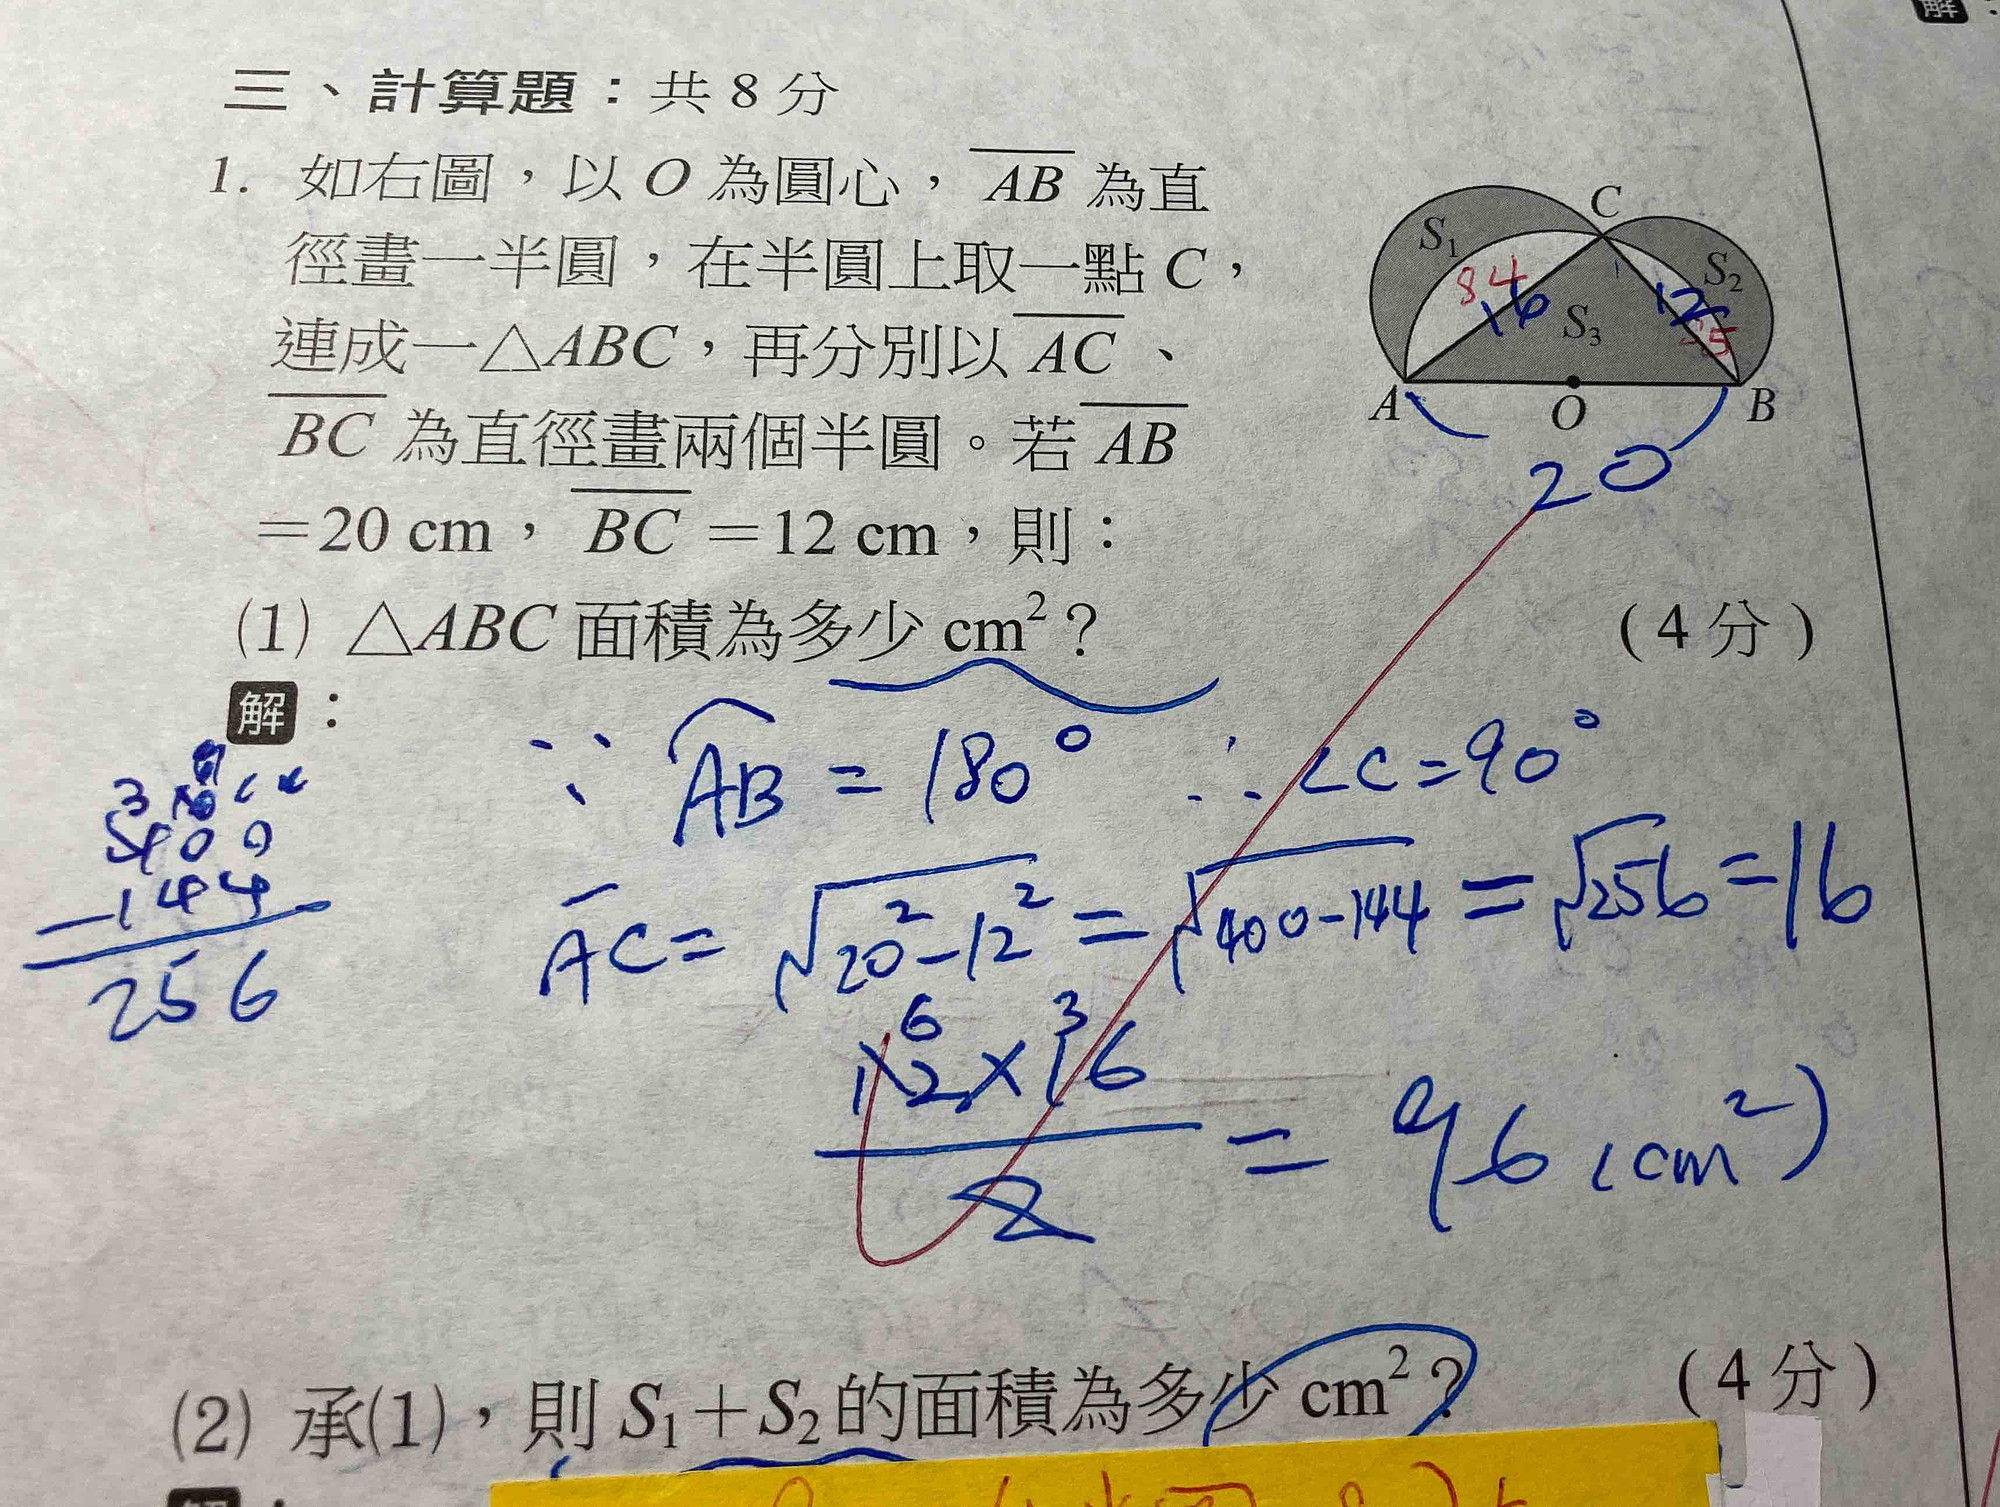 三、計算題：共 8 分
1. 如右圖，以 O 為圓心，AB 為直
徑畫一半圓，在半圓上取一點 C，
連成一△ABC，再分別以 AC、
BC 為直徑畫兩個半圓。若 AB
＝20 cm，BC＝12 cm，則：
C
S₁
S₂
84
16
12
S₃
A
O
B
20
(1) △ABC 面積為多少 cm²？ (4 分)
解：
∵ AB = 180° ∴ ∠C = 90°
400
-144
256
AC = √20²-12² = √400-144 = √256 = 16
6 3
12×16
2
= 96 (cm²)
(2) 承(1)，則 S₁＋S₂ 的面積為多少 cm²？ (4 分)